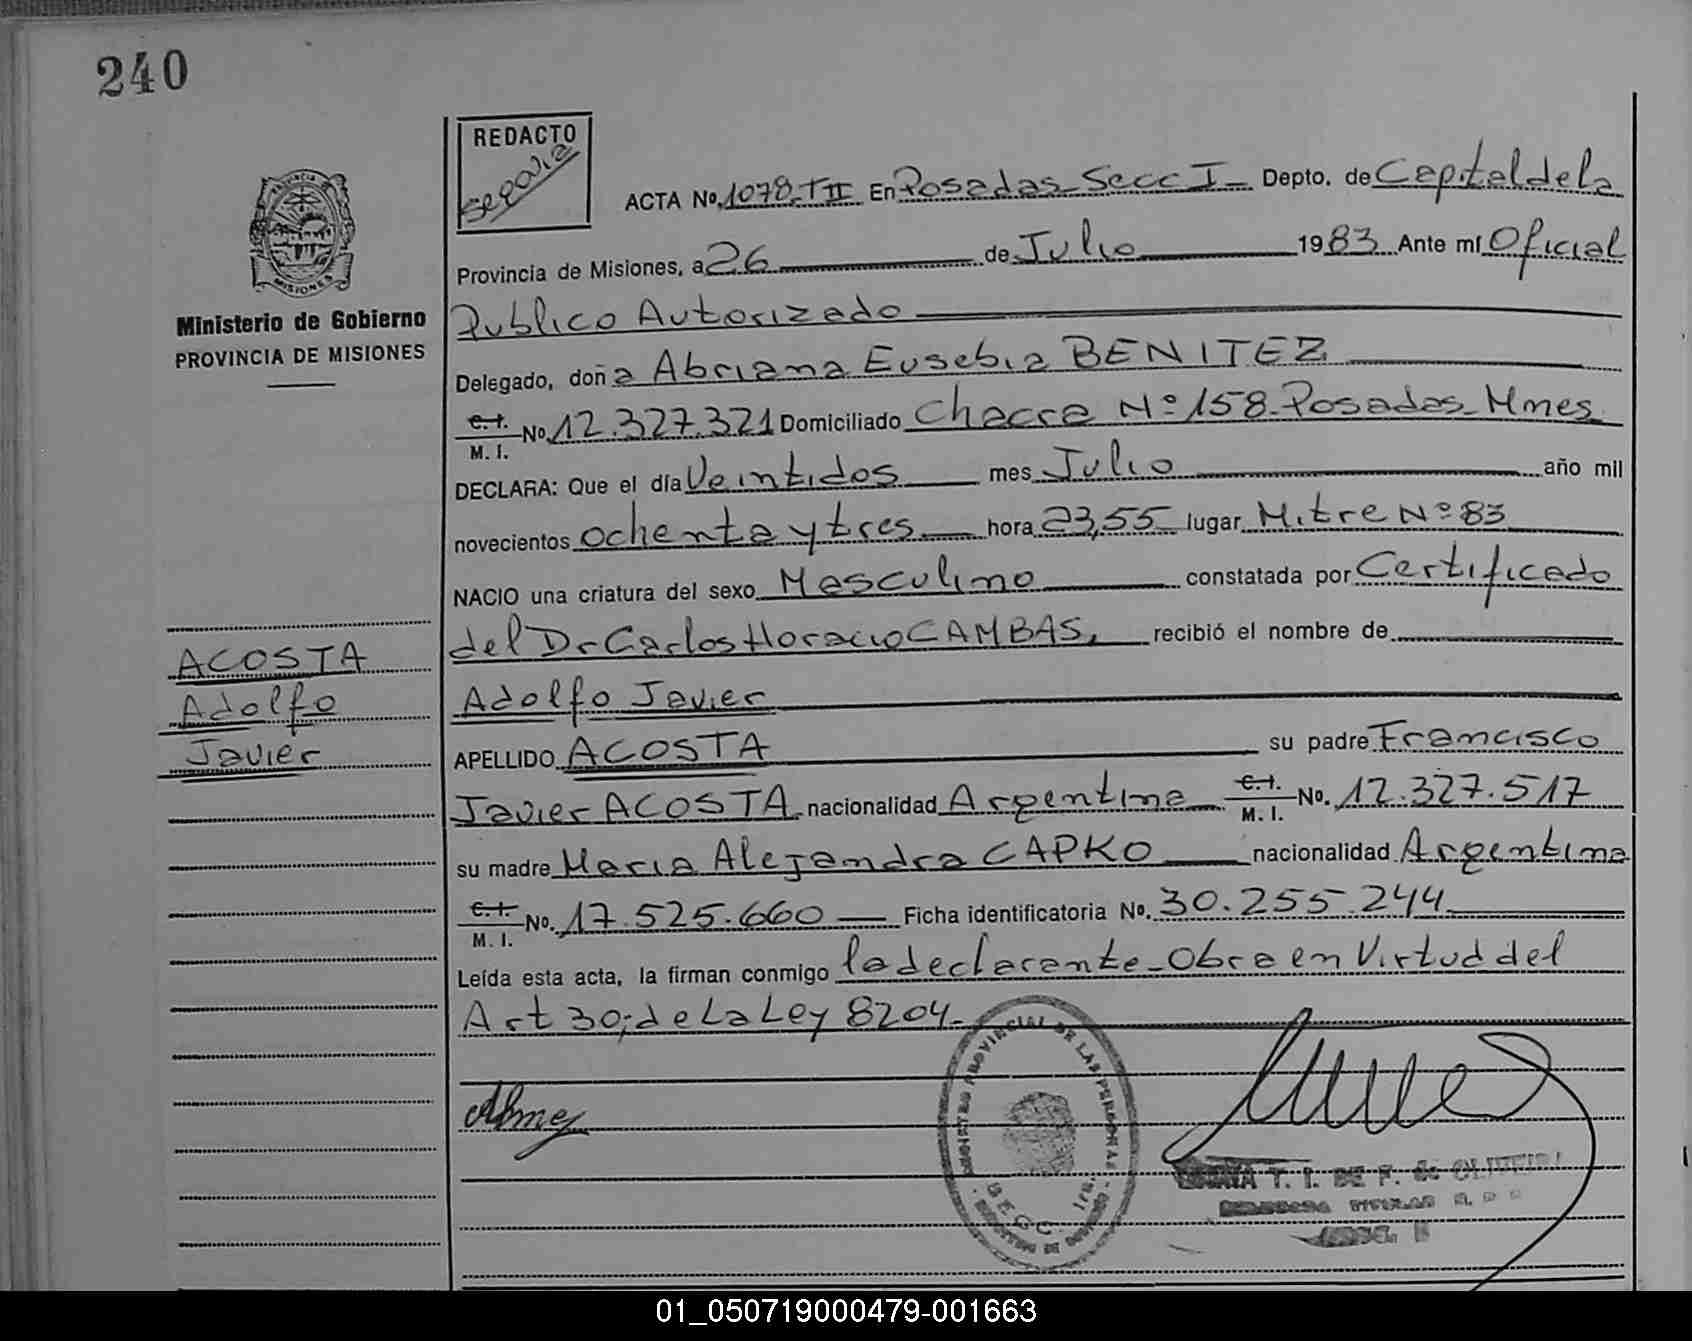 240
REDACTO
ACTA No. 1078-TII En Posadas-Secc I- Depto. de Capital de la
Provincia de Misiones, a 26 de Julio 1983 Ante mí Oficial
Ministerio de Gobierno
PROVINCIA DE MISIONES
Publico Autorizado
Delegado, doña Abriana Eusebia BENITEZ
C.I. M.I. No. 12.327.321 Domiciliado Chacra Nº 158-Posadas-Mnes.
DECLARA: Que el día Veintidos mes Julio año mil
novecientos ochenta y tres hora 23,55 lugar Mitre Nº 83
NACIO una criatura del sexo Masculino constatada por Certificado
del Dr Carlos Horacio CAMBAS, recibió el nombre de
ACOSTA
Adolfo
Javier
Adolfo Javier
APELLIDO ACOSTA su padre Francisco
Javier ACOSTA nacionalidad Argentina C.I. M.I. No. 12.327.517
su madre Maria Alejandra CAPKO nacionalidad Argentina
C.I. M.I. No. 17.525.660 Ficha identificatoria No. 30.255.244
Leída esta acta, la firman conmigo la declarante-Obra en Virtud del
Art 30; de La Ley 8204-
PROVINCIAL DE LAS PERSONAS
T. I. DE F. de
01_050719000479-001663